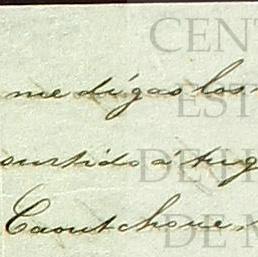 CENT
me digas los
EST
surtido á tu g
DE H
Caoutchouc,
DE M